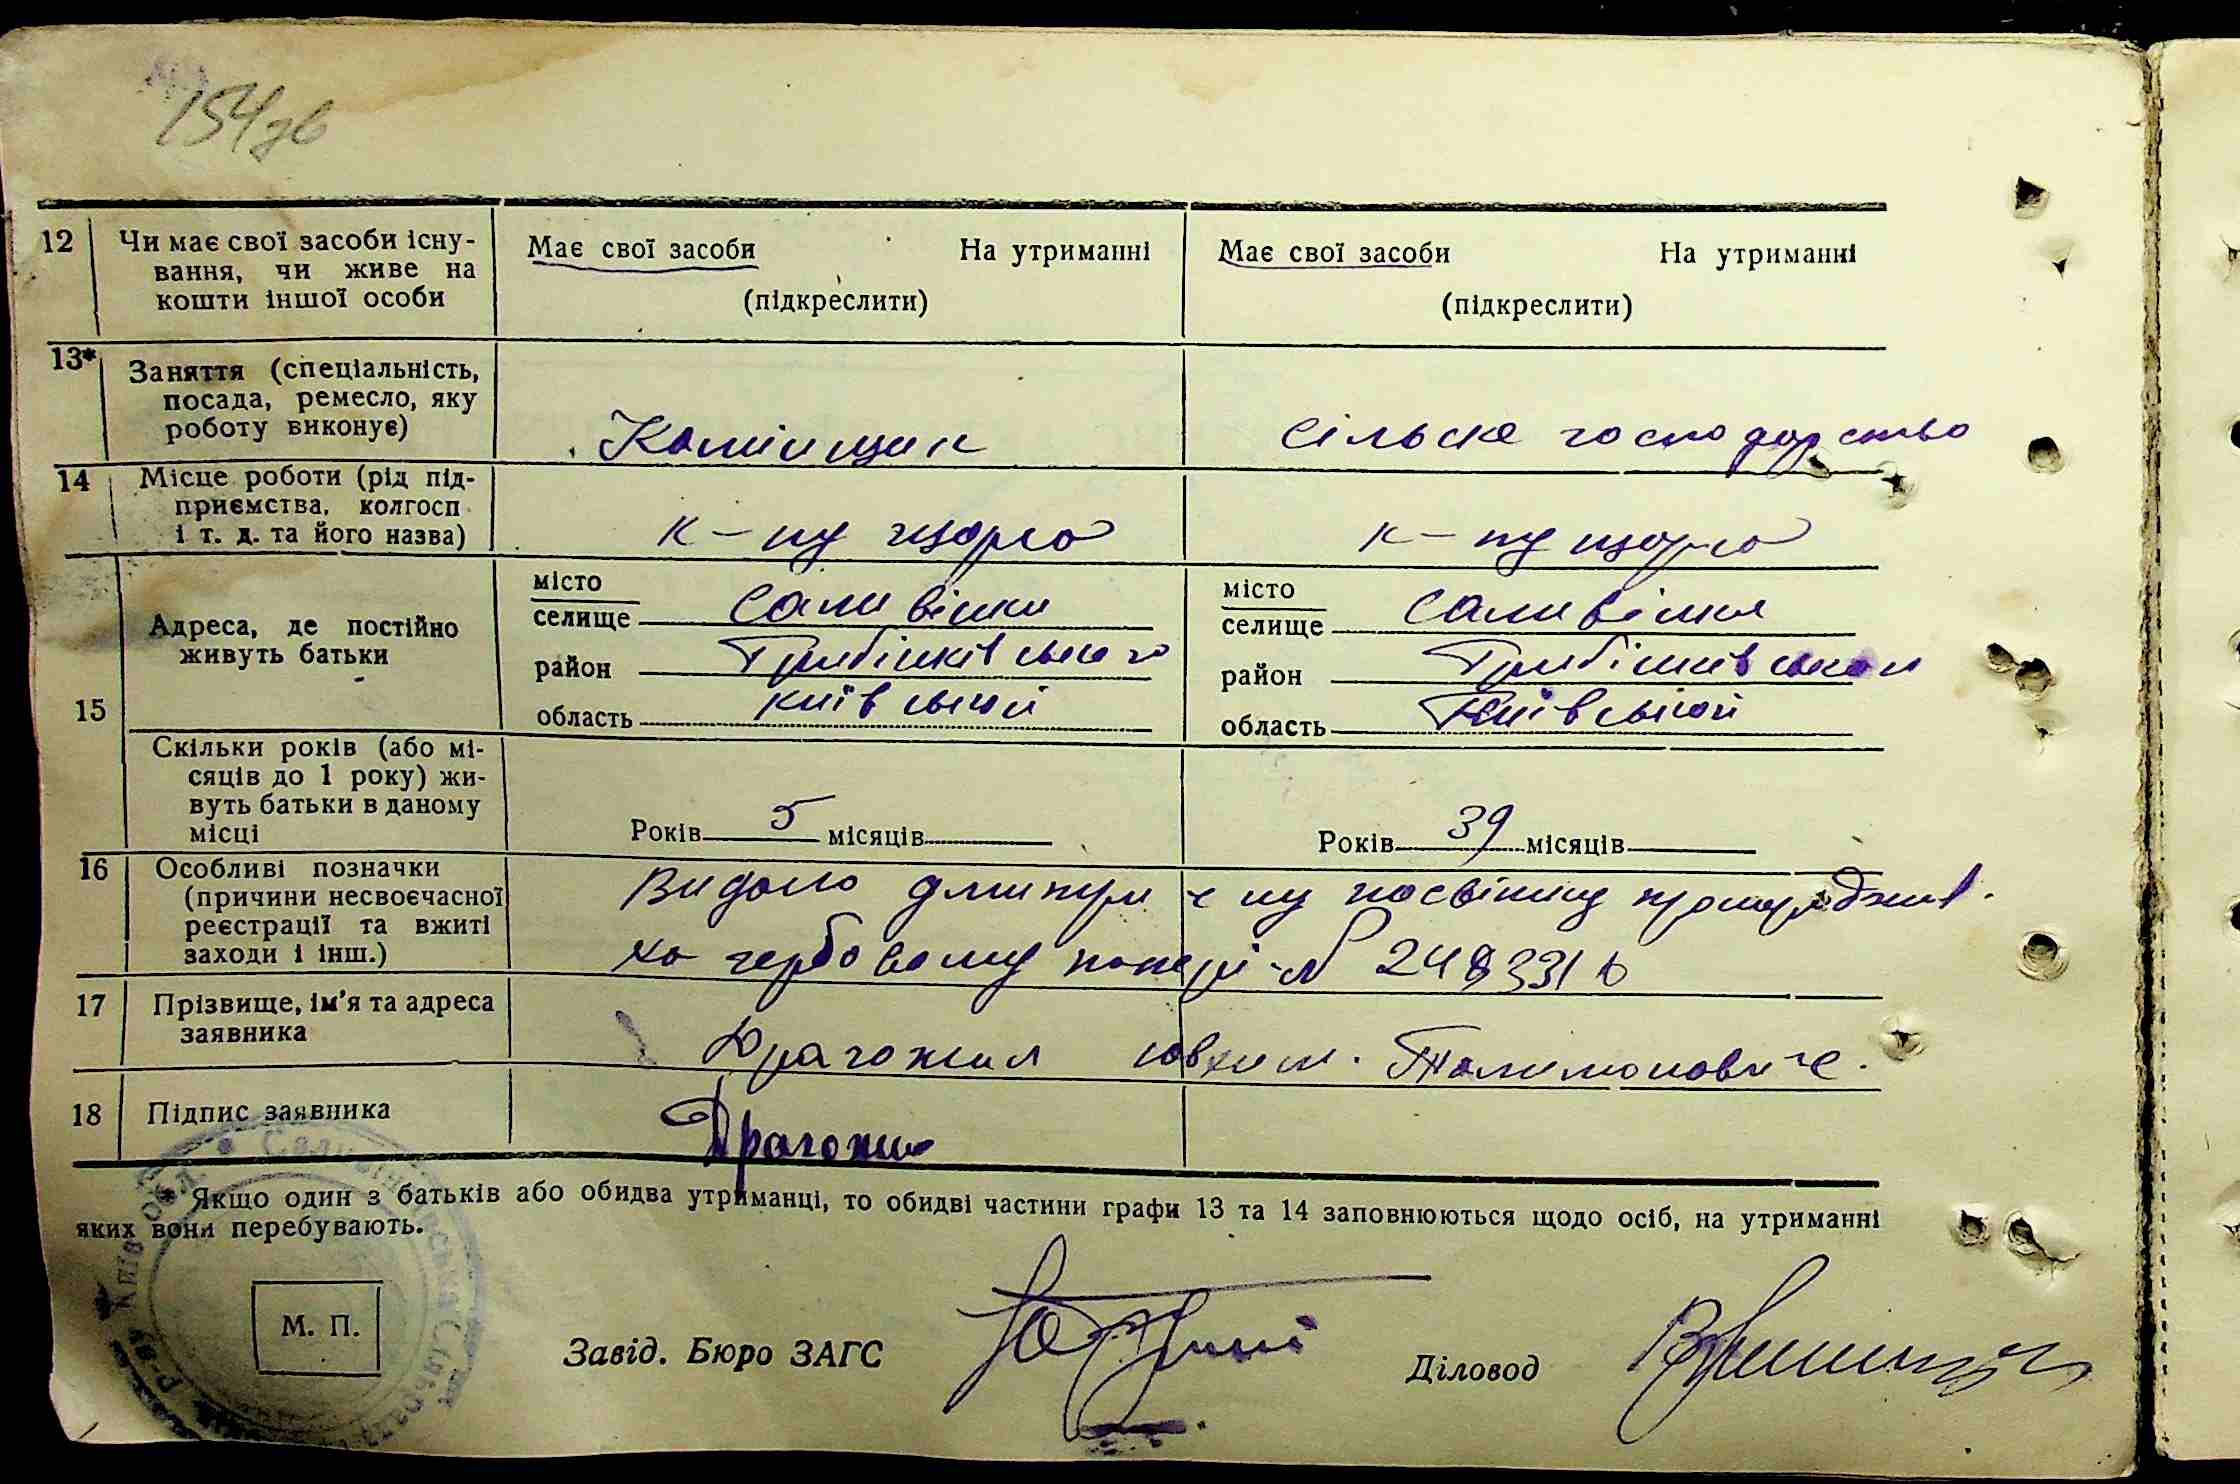 154 зв
12 Чи має свої засоби існу-
вання, чи живе на
кошти іншої особи
Має свої засоби На утриманні
(підкреслити)
Має свої засоби На утриманні
(підкреслити)
13* Заняття (спеціальність,
посада, ремесло, яку
роботу виконує)
сільске господарство
14 Місце роботи (рід під-
приємства, колгосп
і т. д. та його назва)
к-пу щорса
к-пу щорса
15 Адреса, де постійно
живуть батьки
місто
селище Саливінки
район Гребінківського
область київської
місто
селище Саливінки
район Гребінківського
область Київської
Скільки років (або мі-
сяців до 1 року) жи-
вуть батьки в даному
місці
Років 5 місяців
Років 39 місяців
16 Особливі позначки
(причини несвоєчасної
реєстрації та вжиті
заходи і інш.)
Видано
на гербовому папері №
17 Прізвище, ім'я та адреса
заявника
Драгожил
18 Підпис заявника
Драгожил
* Якщо один з батьків або обидва утриманці, то обидві частини графи 13 та 14 заповнюються щодо осіб, на утриманні
яких вони перебувають.
М. П.
Завід. Бюро ЗАГС
Діловод